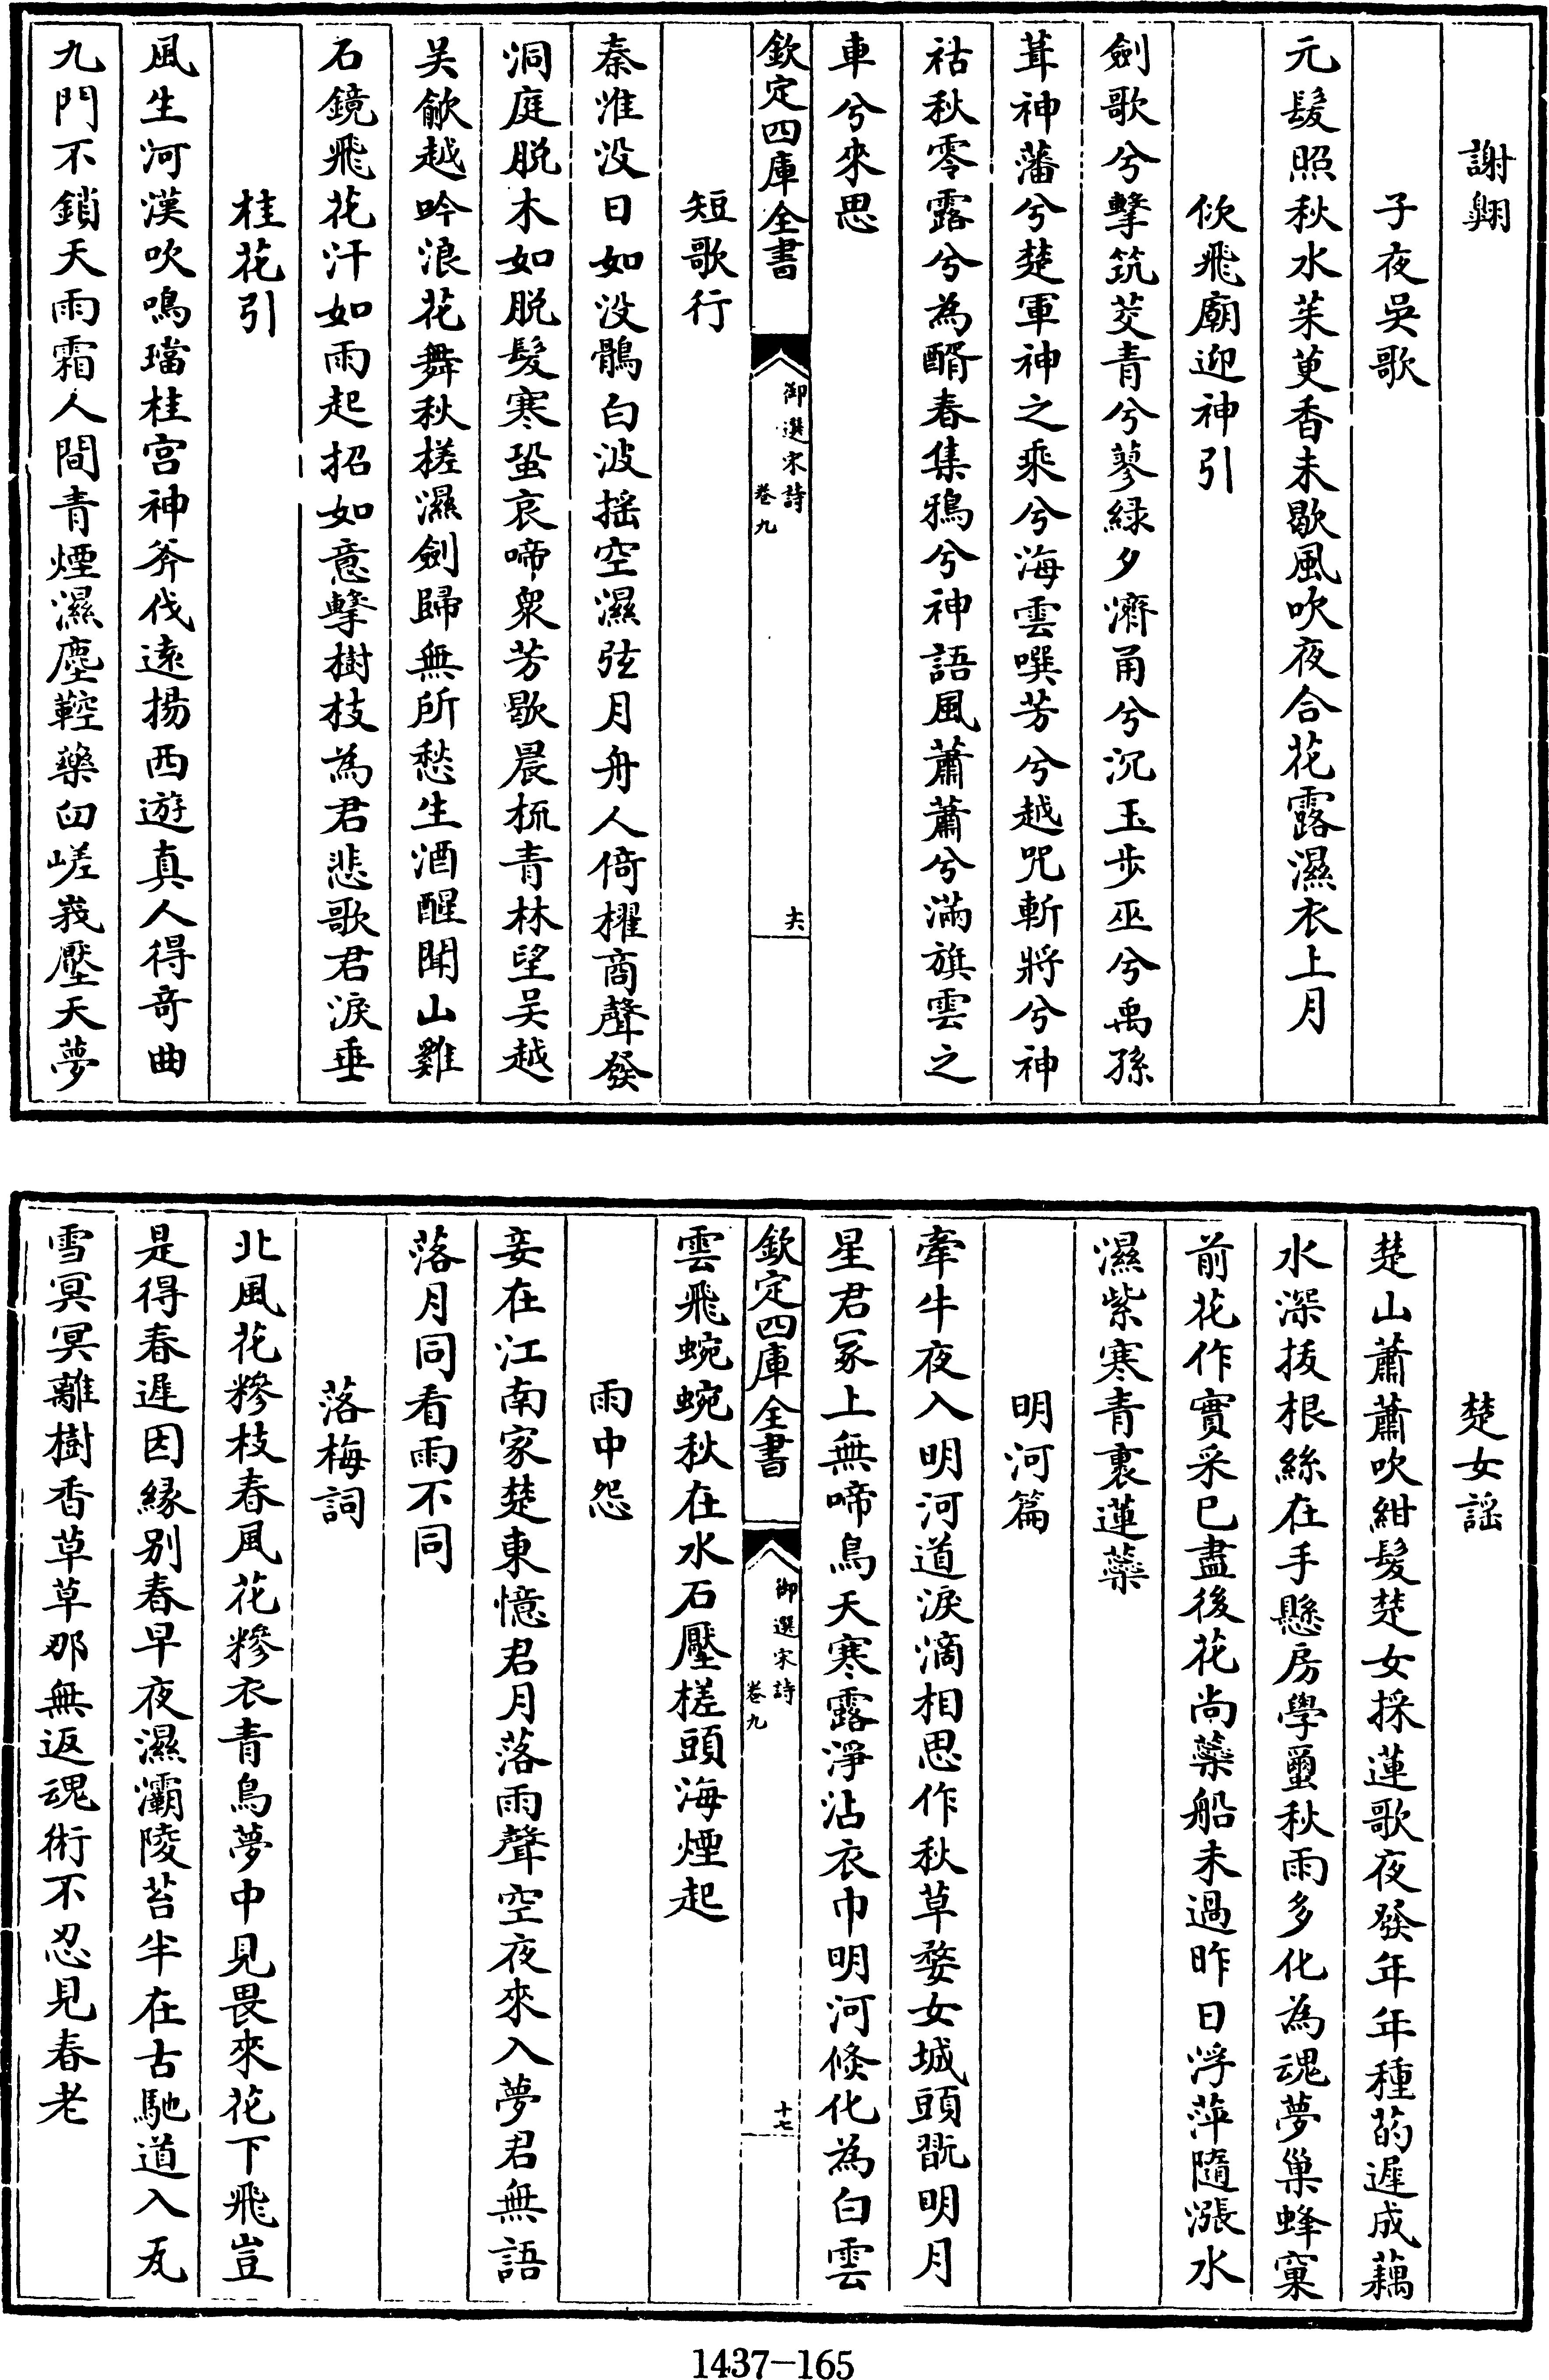 謝翱
子夜吳歌
元髮照秋水茱萸香未歇風吹夜合花露濕衣上月
佽飛廟迎神引
劍歌兮擊筑茭青兮蓼緑夕濟甬兮沉玉步巫兮禹孫
葺神藩兮楚軍神之乘兮海雲噀芳兮越咒斬將兮神
祜秋零露兮為醑春集鴉兮神語風蕭蕭兮滿旗雲之
車兮來思
欽定四庫全書
御選宋詩
卷九
十六
短歌行
秦淮没日如没鶻白波揺空濕弦月舟人倚櫂商聲發
洞庭脱木如脱髮寒蛩哀啼衆芳歇晨梳青林望吴越
吴歈越吟浪花舞秋槎濕劍歸無所愁生酒醒聞山雞
石鏡飛花汗如雨起招如意擊樹枝為君悲歌君淚垂
桂花引
風生河漢吹鳴璫桂宫神斧伐逺揚西遊真人得奇曲
九門不鎖天雨霜人間青煙濕塵鞚藥臼嵯峩壓天夢
楚女謡
楚山蕭蕭吹紺髮楚女採蓮歌夜發年年種菂遲成藕
水深拔根絲在手懸房學璽秋雨多化為魂夢巢蜂窠
前花作實采已盡後花尚藥船未過昨日浮萍隨漲水
濕紫寒青裹蓮藥
明河篇
牽牛夜入明河道淚滴相思作秋草婺女城頭翫明月
星君冢上無啼鳥天寒露淨沾衣巾明河倐化為白雲
欽定四庫全書
御選宋詩
卷九
十七
雲飛蜿蜿秋在水石壓槎頭海煙起
雨中怨
妾在江南家楚東憶君月落雨聲空夜來入夢君無語
落月同看雨不同
落梅詞
北風花糝枝春風花糝衣青鳥夢中見畏來花下飛豈
是得春遲因縁别春早夜濕灞陵苔半在古馳道入瓦
雪冥冥離樹香草草那無返魂術不忍見春老
1437-165